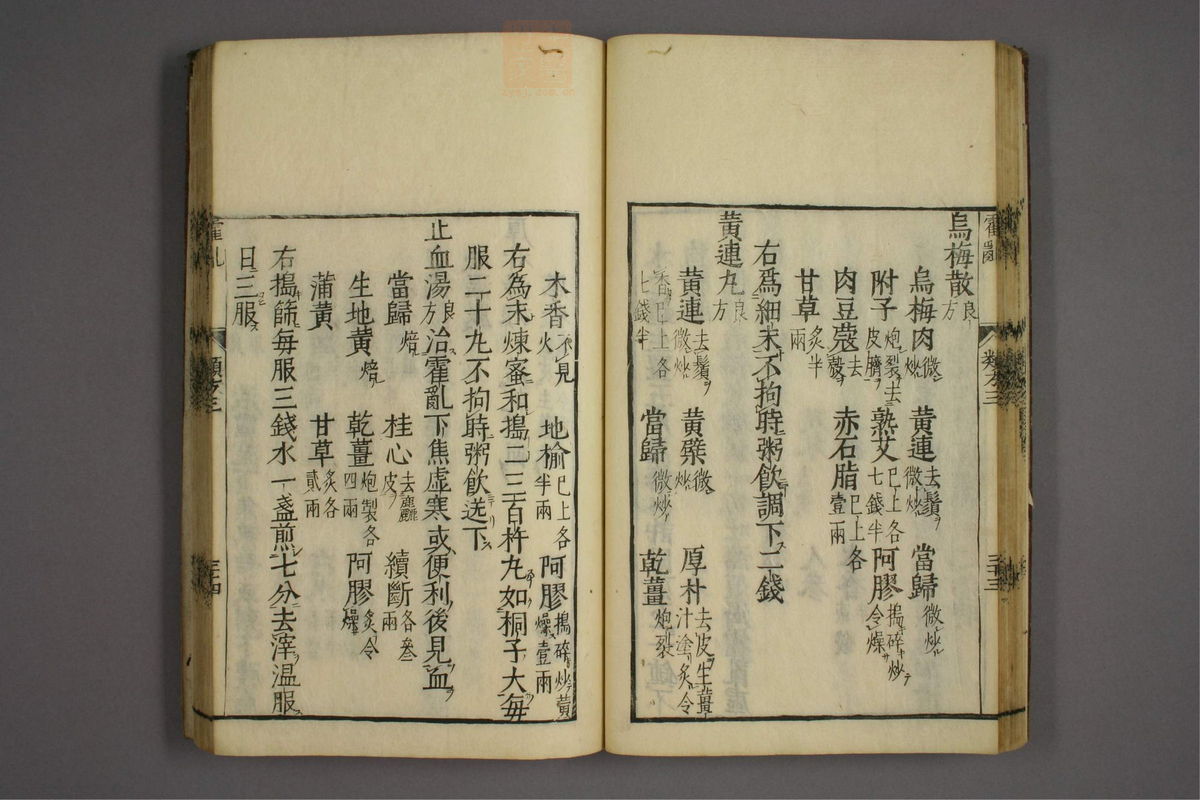 烏梅散良方
烏梅肉微炒 黃連去鬚微炒 當歸微炒
附子炮裂去皮臍 熟艾巳上各七錢半 阿膠搗碎炒令燥
肉豆蔻去殼 赤石脂巳上各壹兩
甘草炙半兩
右爲細末不拘時粥飲調下二錢
黃連丸良方
黃連去鬚微炒 黃蘗微炒 厚朴去皮生薑汁塗炙令
香巳上各七錢半 當歸微炒 乾薑炮裂
霍亂 類方三 三十三
木香不見火 地榆巳上各半兩 阿膠搗碎炒黃燥壹兩
右為末煉蜜和搗二三百杵丸如桐子大每
服二十丸不拘時粥飲送下
止血湯良方治霍亂下焦虛寒或便利後見血
當歸焙 桂心去麤皮 續斷各叁兩
生地黃焙 乾薑炮製各四兩 阿膠炙令燥
蒲黃 甘草炙各貳兩
右搗篩每服三錢水一盞煎七分去滓溫服
日三服
霍乱 類方三 三十四